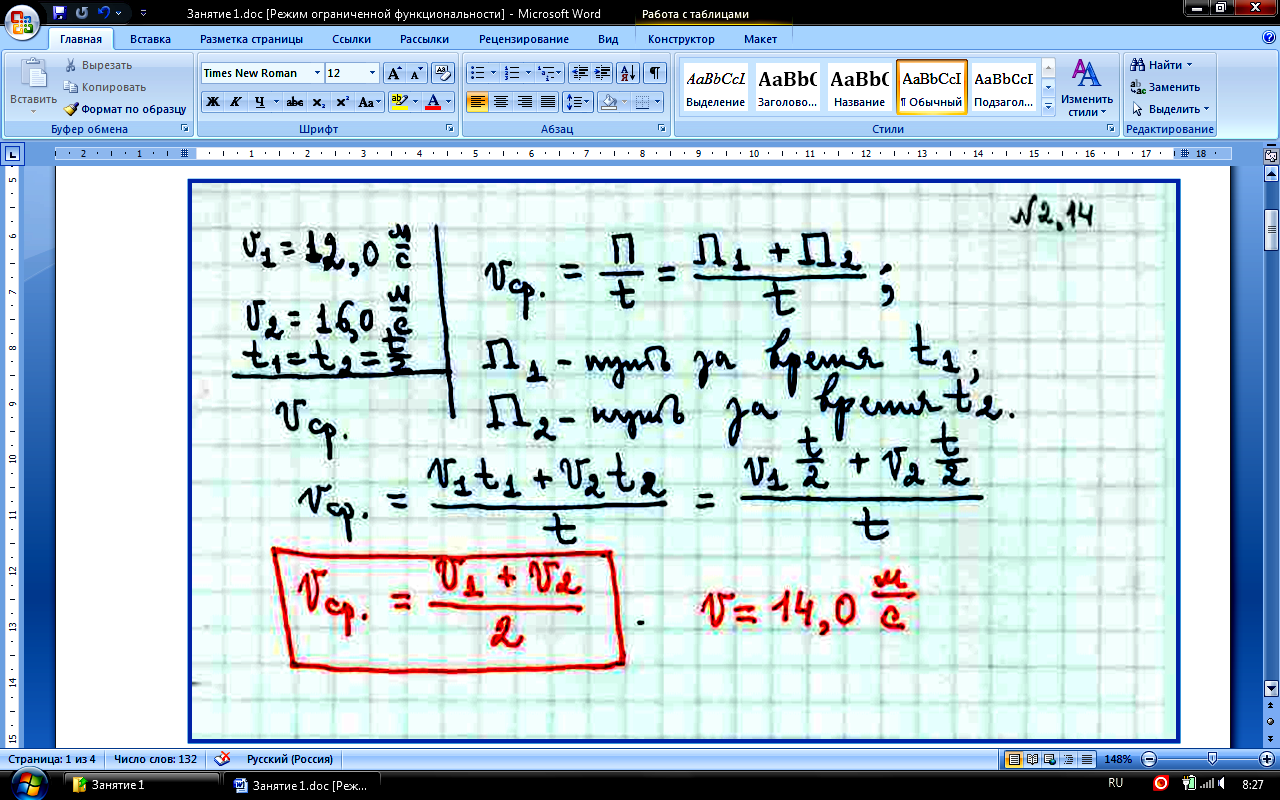 Занятие 1.doc [Режим ограниченной функциональности] - Microsoft Word
Работа с таблицами
Главная Вставка Разметка страницы Ссылки Рассылки Рецензирование Вид Конструктор Макет
Вставить
Вырезать
Копировать
Формат по образцу
Буфер обмена
Times New Roman 12
Ж К Ч abc x₂ x² Aa
Шрифт
Абзац
АаBbCcI АаBbC АаBbC АаBbCcI АаBbCcI
Выделение Заголово... Название ¶ Обычный Подзагол...
Изменить стили
Стили
Найти
Заменить
Выделить
Редактирование
2 1 1 2 3 4 5 6 7 8 9 10 11 12 13 14 15 16 17 18
5
6
7
8
9
10
11
12
13
14
15
N2,14
v₁ = 12,0 м/с
v₂ = 16,0 м/с
t₁ = t₂ = t/2
vср.
vср. = П/t = (П₁ + П₂)/t ;
П₁ - путь за время t₁;
П₂ - путь за время t₂.
vср. = (v₁t₁ + v₂t₂)/t = (v₁ t/2 + v₂ t/2)/t
vср. = (v₁ + v₂)/2 . v = 14,0 м/с
Страница: 1 из 4 Число слов: 132 Русский (Россия) 148%
Занятие 1 Занятие 1.doc [Реж... RU 8:27